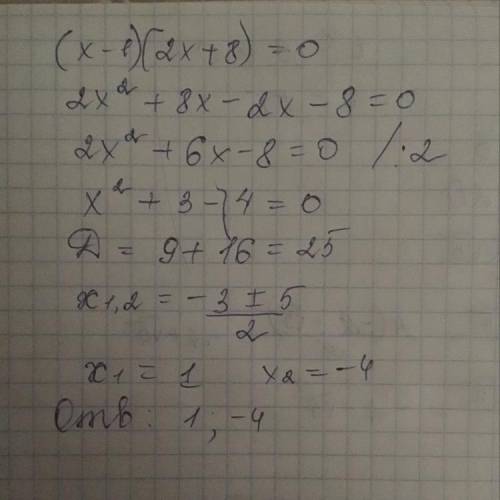 (x-1)(2x+8)=0
2x² + 8x - 2x - 8 = 0
2x² + 6x - 8 = 0 /:2
x² + 3 - 4 = 0
D = 9 + 16 = 25
x1,2 = -3 ± 5 / 2
x1 = 1 x2 = -4
Отв: 1 ; -4